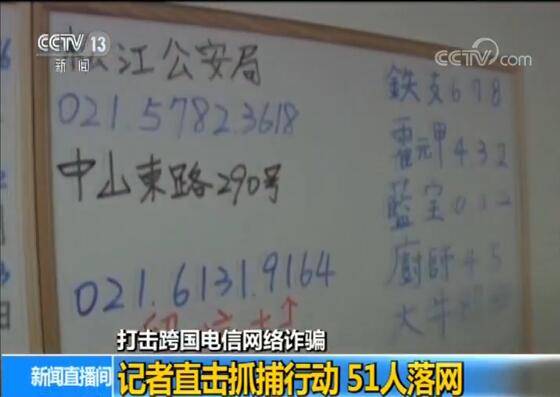 CCTV 13
新闻
央视网
cctv.com
松江公安局
021.5782.3618
中山東路290号
021.6131.9164
鉄支678
霍元甲432
藍宝012
廚師45
大牛
打击跨国电信网络诈骗
新闻直播间
记者直击抓捕行动 51人落网